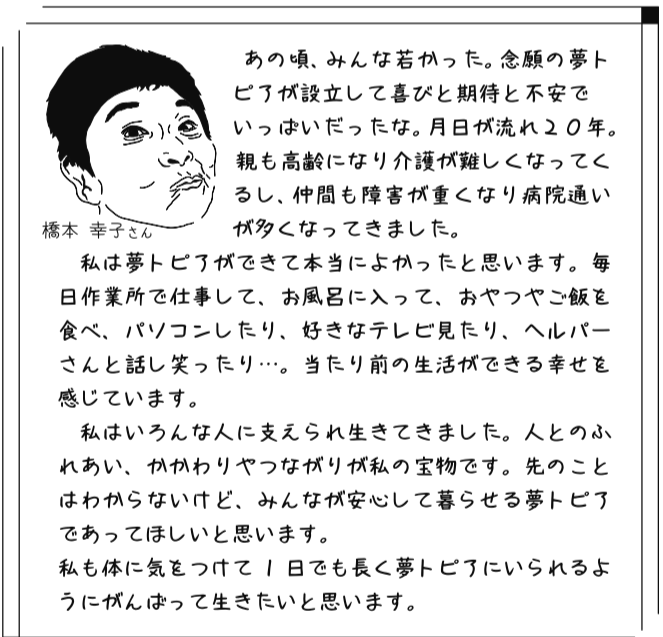 あの頃、みんな若かった。念願の夢ト
ピアが設立して喜びと期待と不安で
いっぱいだったな。月日が流れ２０年。
親も高齢になり介護が難しくなってく
るし、仲間も障害が重くなり病院通い
が多くなってきました。
橋本 幸子さん
私は夢トピアができて本当によかったと思います。毎
日作業所で仕事して、お風呂に入って、おやつやご飯を
食べ、パソコンしたり、好きなテレビ見たり、ヘルパー
さんと話し笑ったり…。当たり前の生活ができる幸せを
感じています。
私はいろんな人に支えられ生きてきました。人とのふ
れあい、かかわりやつながりが私の宝物です。先のこと
はわからないけど、みんなが安心して暮らせる夢トピア
であってほしいと思います。
私も体に気をつけて１日でも長く夢トピアにいられるよ
うにがんばって生きたいと思います。